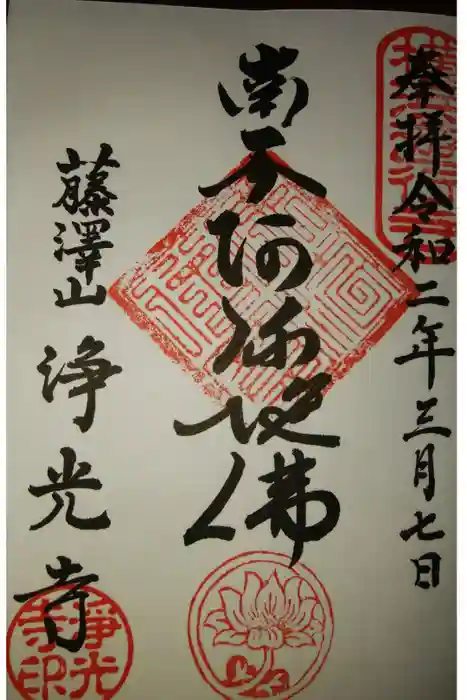 奉拝令和二年三月七日
南无阿弥陀佛
藤澤山
浄光寺
浄光寺印